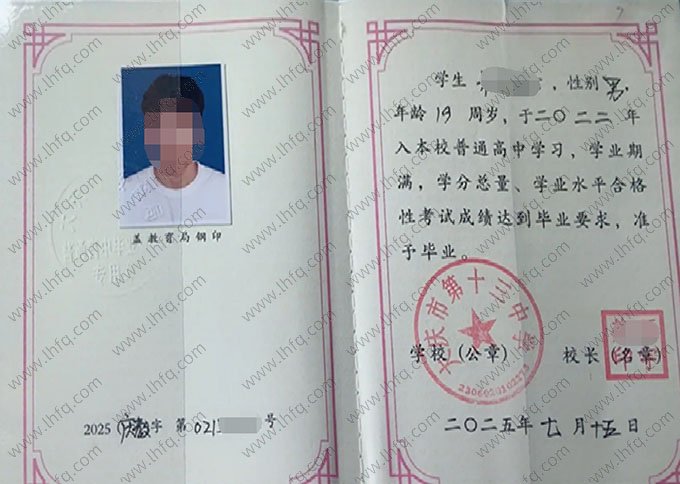 盖教育局钢印
2025 庆教字 第 021 号
学生 ，性别 男，
年龄 19 周岁，于二〇二二年
入本校普通高中学习，学业期
满，学分总量、学业水平合格
性考试成绩达到毕业要求，准
予毕业。
大庆市第十三中学
学校（公章）
校长（名章）
二〇二五年 七 月 十五 日
www.lhfq.com